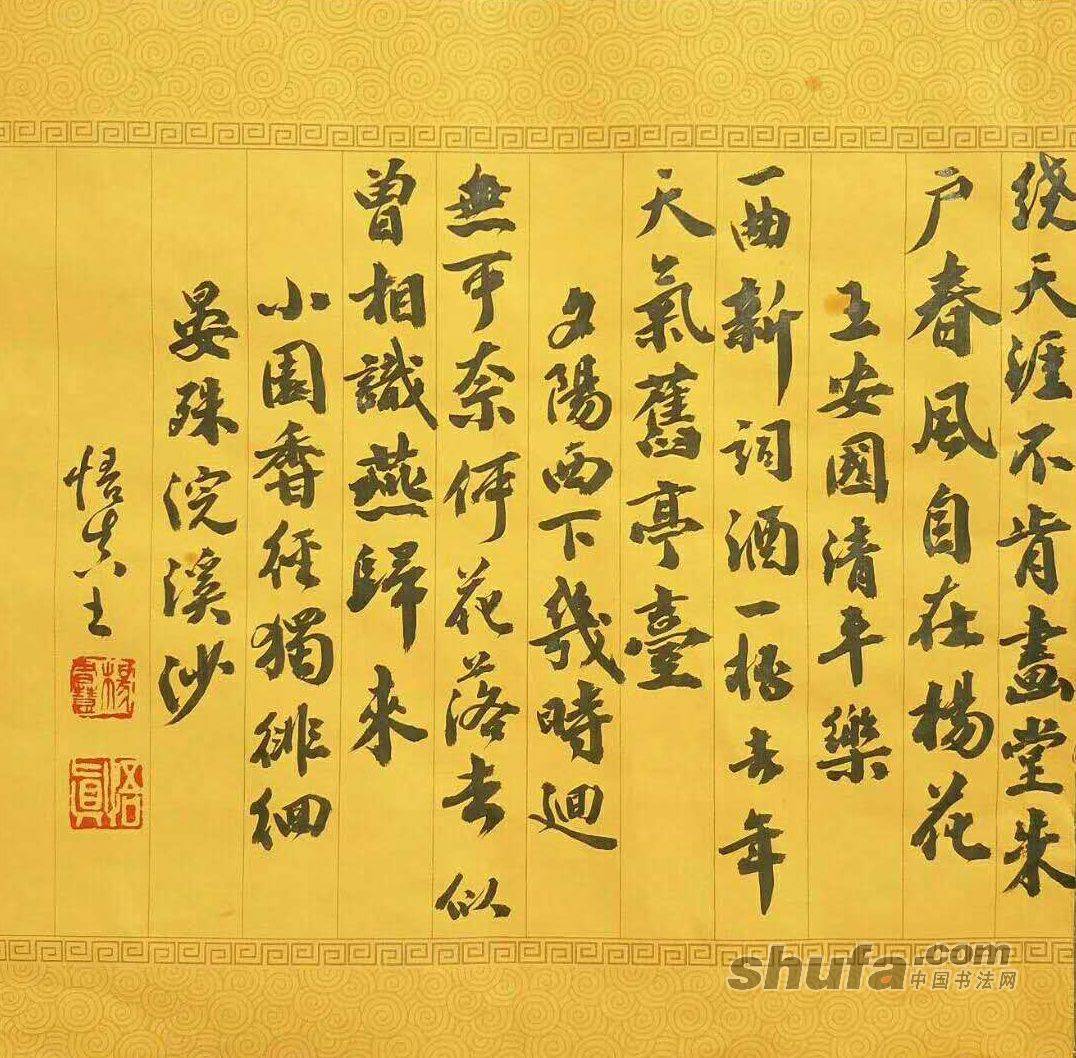 绕天涯不肯畫堂朱
户春風自在楊花
王安國清平樂
一曲新詞酒一杯去年
天氣舊亭臺
夕陽西下幾時迴
無可奈何花落去似
曾相識燕歸來
小園香徑獨徘徊
晏殊浣溪沙
悟真士
悟真
shufa.com
中国书法网